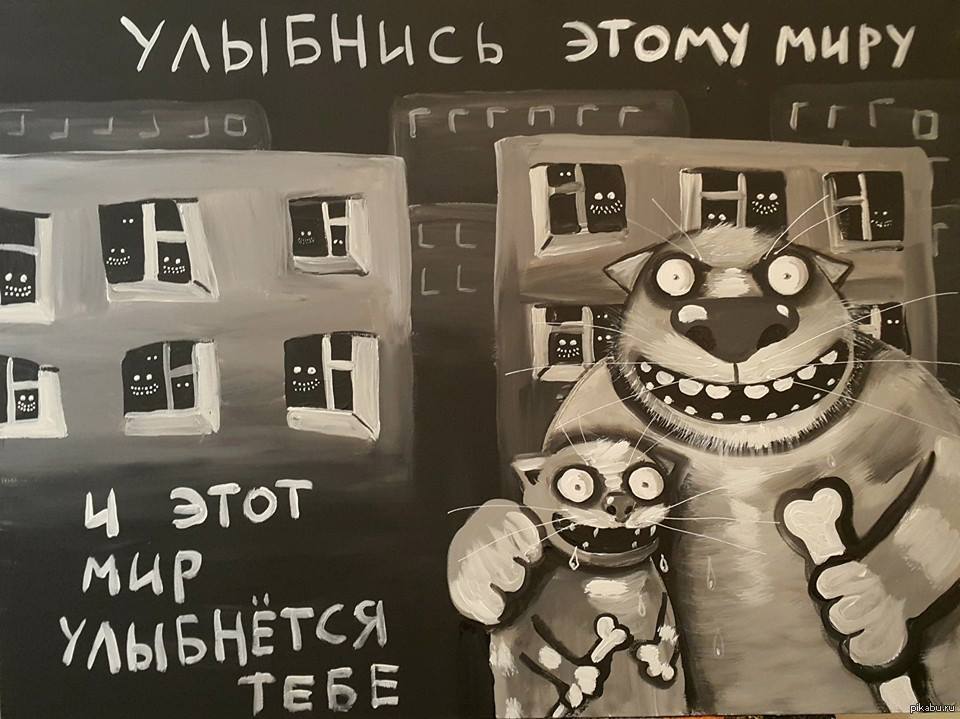 УЛЫБНИСЬ ЭТОМУ МИРУ
И ЭТОТ
МИР
УЛЫБНЁТСЯ
ТЕБЕ
pikabu.ru